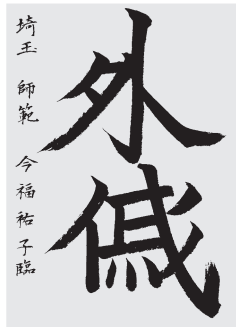 外戚
埼玉 師範 今福祐子臨